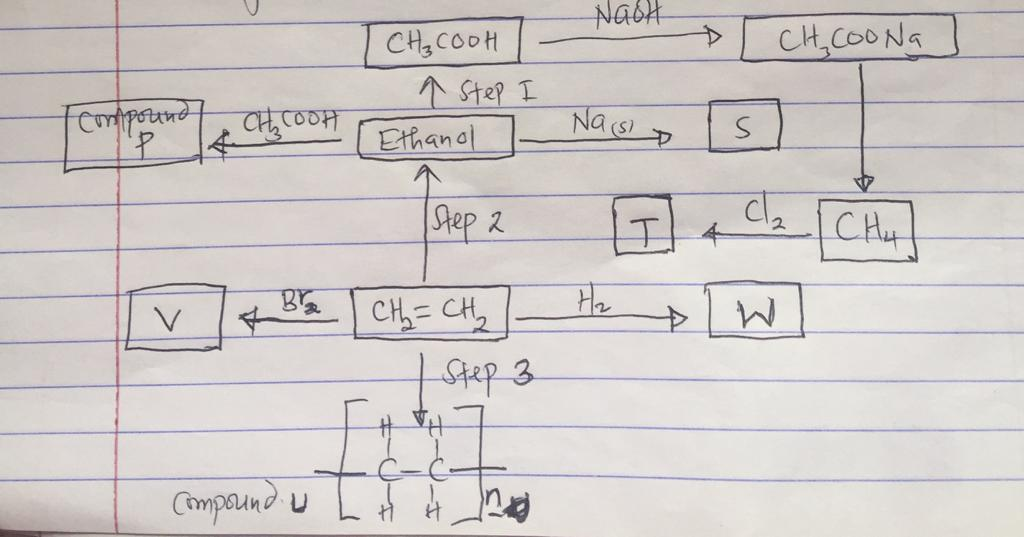 NaOH
CH₃COOH CH₃COONa
Step I
Compound P CH₃COOH Ethanol Na(s) S
Step 2
T Cl₂ CH₄
V Br₂ CH₂=CH₂ H₂ W
Step 3
H H
C-C
Compound U H H n